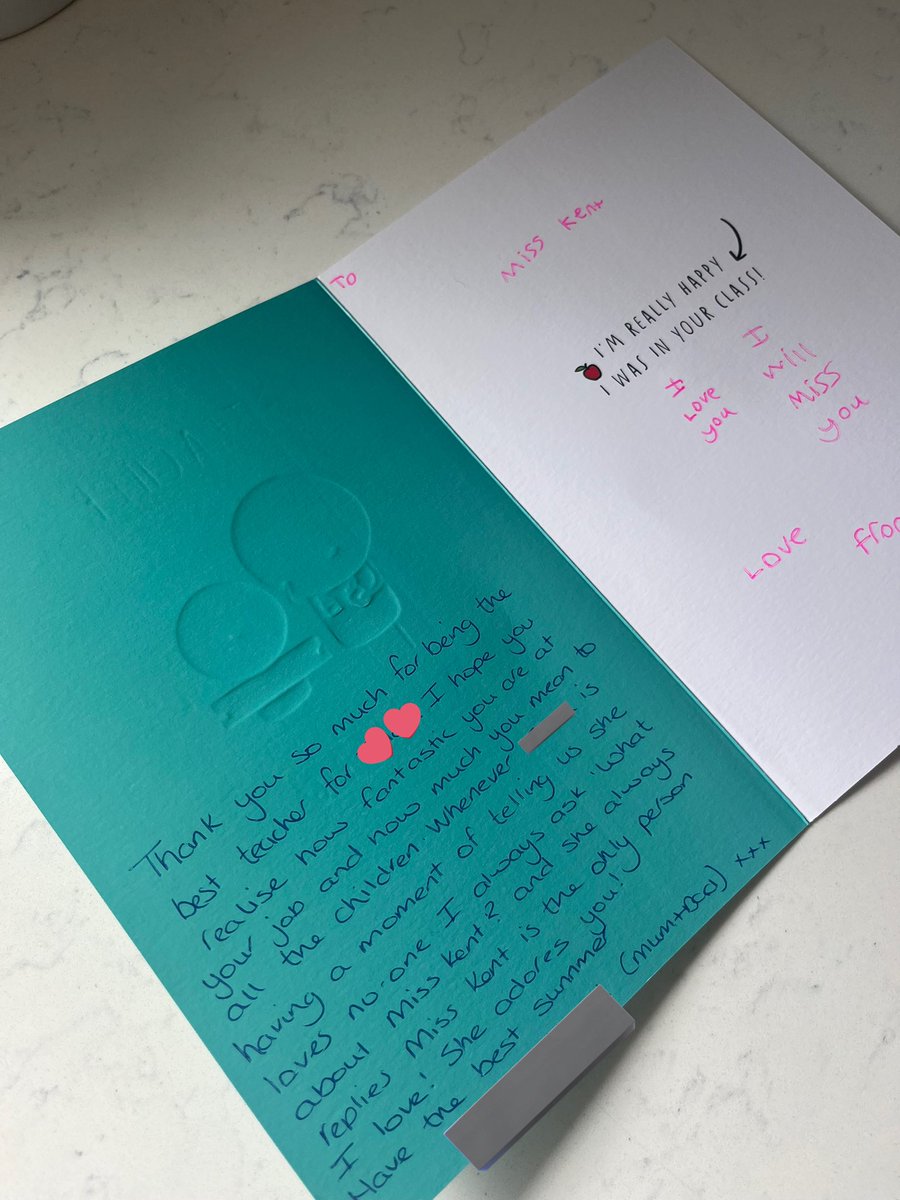 Thank you so much for being the
best teacher for I hope you
realise how fantastic you are at
your job and how much you mean to
all the children. Whenever is
having a moment of telling us she
loves no-one I always ask 'what
about Miss Kent? and she always
replies Miss Kent is the only person
I love! She adores you!
Have the best summer
(Mum+Dad) xxx
To
Miss Kent
I'M REALLY HAPPY
I WAS IN YOUR CLASS!
I
Love
you
I
will
Miss
you
Love from